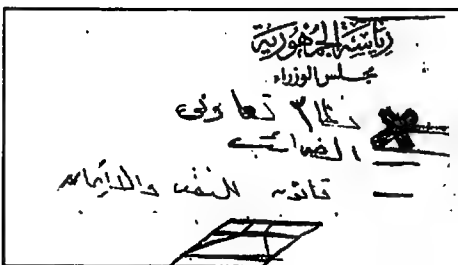 رئاسة الجمهورية
مجلس الوزراء
نظام تعاوني
الضرائب
قانون النفس والا